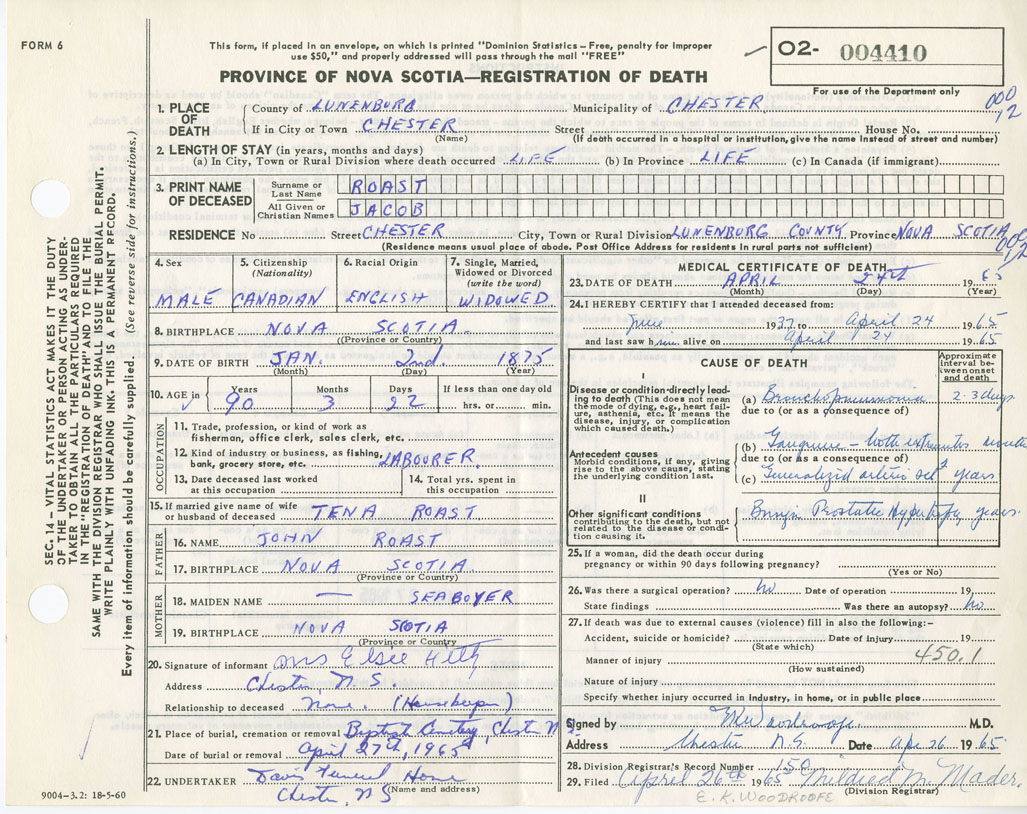 FORM 6
This form, if placed in an envelope, on which is printed "Dominion Statistics – Free, penalty for improper
use $50," and properly addressed will pass through the mail "FREE"
O2- 004410
PROVINCE OF NOVA SCOTIA—REGISTRATION OF DEATH
For use of the Department only
1. PLACE OF DEATH
County of LUNENBURG Municipality of CHESTER
If in City or Town CHESTER Street House No.
(Name) (If death occurred in a hospital or institution, give the name instead of street and number)
2. LENGTH OF STAY (in years, months and days)
(a) In City, Town or Rural Division where death occurred LIFE (b) In Province LIFE (c) In Canada (if immigrant)
3. PRINT NAME OF DECEASED
Surname or Last Name ROAST
All Given or Christian Names JACOB
RESIDENCE No Street CHESTER City, Town or Rural Division LUNENBURG COUNTY Province NOVA SCOTIA
(Residence means usual place of abode. Post Office Address for residents in rural parts not sufficient)
SEC. 14 – VITAL STATISTICS ACT MAKES IT THE DUTY
OF THE UNDERTAKER OR PERSON ACTING AS UNDER-
TAKER TO OBTAIN ALL THE PARTICULARS REQUIRED
IN THE "REGISTRATION OF DEATH" AND TO FILE THE
SAME WITH THE DIVISION REGISTRAR WHO SHALL ISSUE THE BURIAL PERMIT.
WRITE PLAINLY WITH UNFADING INK. THIS IS A PERMANENT RECORD.
Every item of information should be carefully supplied. (See reverse side for instructions.)
4. Sex
MALE
5. Citizenship
(Nationality)
CANADIAN
6. Racial Origin
ENGLISH
7. Single, Married,
Widowed or Divorced
(write the word)
WIDOWED
8. BIRTHPLACE NOVA SCOTIA
(Province or Country)
9. DATE OF BIRTH JAN. 2nd. 1875
(Month) (Day) (Year)
10. AGE in
Years Months Days If less than one day old
90 3 22 hrs. or min.
OCCUPATION
11. Trade, profession, or kind of work as
fisherman, office clerk, sales clerk, etc.
12. Kind of industry or business, as fishing,
bank, grocery store, etc. LABOURER.
13. Date deceased last worked
at this occupation
14. Total yrs. spent in
this occupation
15. If married give name of wife
or husband of deceased TENA ROAST
FATHER
16. NAME JOHN ROAST
17. BIRTHPLACE NOVA SCOTIA
(Province or Country)
MOTHER
18. MAIDEN NAME — SEABOYER
19. BIRTHPLACE NOVA SCOTIA
(Province or Country)
20. Signature of informant Mrs Elsie
Address Chester, N.S.
Relationship to deceased None. (Housekeeper)
21. Place of burial, cremation or removal Baptist Cemetery, Chester N S
Date of burial or removal April 27th, 1965
22. UNDERTAKER Davis Funeral Home
(Name and address)
Chester, NS
9004–3.2: 18-5-60
MEDICAL CERTIFICATE OF DEATH
23. DATE OF DEATH APRIL 24th 1965
(Month) (Day) (Year)
24. I HEREBY CERTIFY that I attended deceased from:
June 1937 to April 24 1965
and last saw him alive on April 24 1965
CAUSE OF DEATH
Approximate interval between onset and death
I
Disease or condition directly lead-
ing to death (This does not mean
the mode of dying, e.g., heart fail-
ure, asthenia, etc. It means the
disease, injury, or complication
which caused death.)
(a) Bronchopneumonia 2-3 days
due to (or as a consequence of)
Antecedent causes
Morbid conditions, if any, giving
rise to the above cause, stating
the underlying condition last.
(b) Gangrene both
due to (or as a consequence of)
(c) Generalized arterio scl years
II
Other significant conditions
contributing to the death, but not
related to the disease or condi-
tion causing it.
Benign Prostatic Hypertrophy years.
25. If a woman, did the death occur during
pregnancy or within 90 days following pregnancy?
(Yes or No)
26. Was there a surgical operation? No Date of operation 19
State findings Was there an autopsy? No
27. If death was due to external causes (violence) fill in also the following:–
Accident, suicide or homicide? Date of injury 19
(State which)
Manner of injury 450.1
(How sustained)
Nature of injury
Specify whether injury occurred in industry, in home, or in public place
Signed by Woodroofe M.D.
Address Chester N.S. Date Apr 26 1965
28. Division Registrar's Record Number 150
29. Filed April 26th 1965 Mildred M. Mader
(Division Registrar)
E. K. WOODROOFE